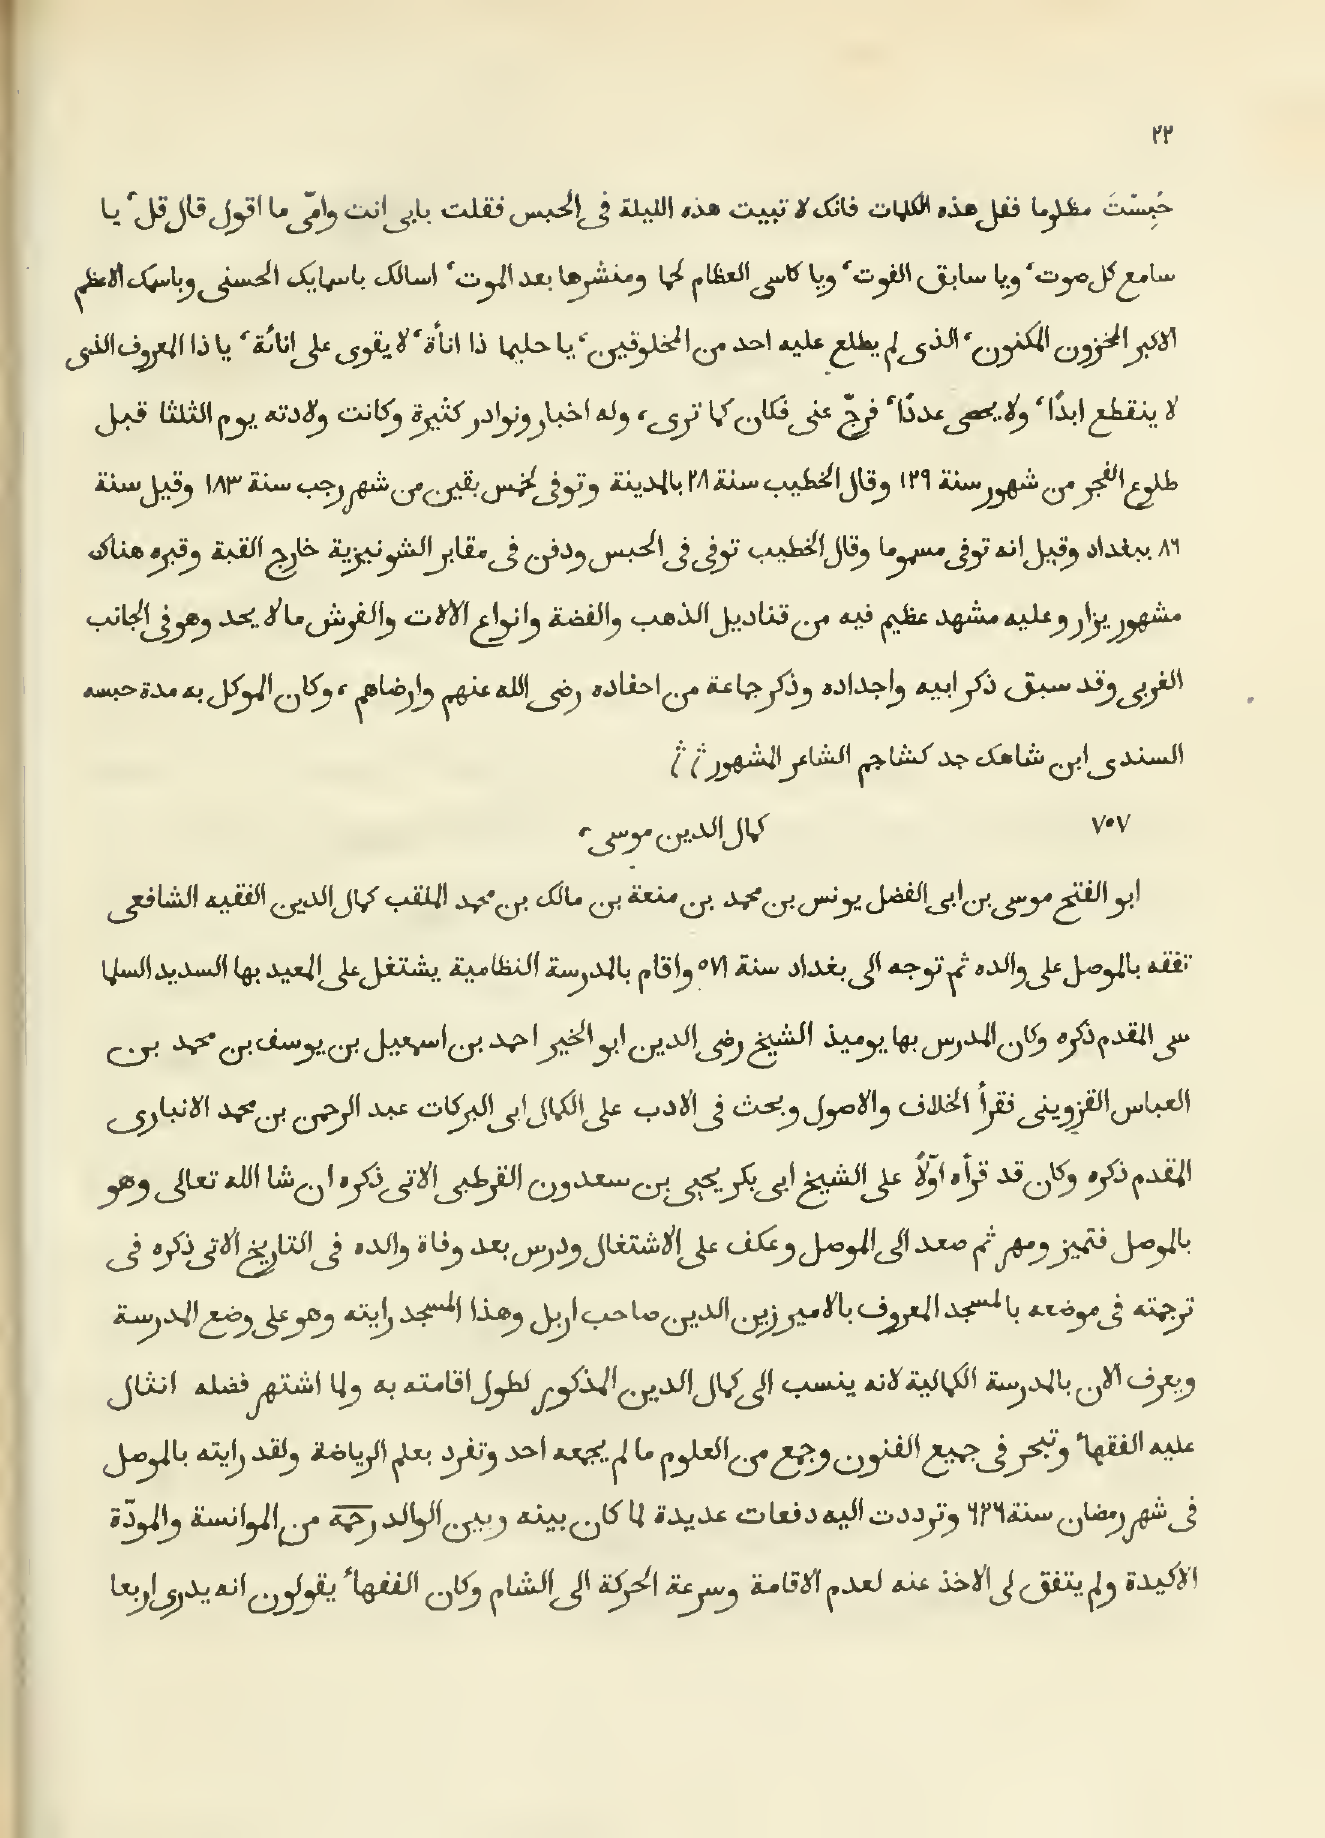 ٢٢
حُبِسْتَ مظلوما فقل هذه الكلمات فانك لا تبيت هذه الليلة فى الحبس فقلت بابى انت وامّى ما اقول قال قل، يا
سامع كل صوت، ويا سابق الفوت، ويا كاسى العظام لحما ومنشرها بعد الموت، اسالك باسمايك الحسنى وباسمك الاعظم
الاكبر المخزون المكنون، الذى لم يطلع عليه احد من المخلوقين، يا حليما ذا اناأة، لا يقوى على اناثه، يا ذا المعروف الذى
لا ينقطع ابدًا، ولا يحصى عددًا، فرجّ عنى فكان كما ترى، وله اخبار ونوادر كثيرة وكانت ولادته يوم الثلثا قبل
طلوع الفجر من شهور سنة ١٢٩ وقال الخطيب سنة ٢٨ بالمدينة وتوفى لخمس بقين من شهر رجب سنة ١٨٣ وقيل سنة
٨٦ ببغداد وقيل انه توفى مسموما وقال الخطيب توفى فى الحبس ودفن فى مقابر الشونيزية خارج القبة وقبره هناك
مشهور يزار وعليه مشهد عظيم فيه من قناديل الذهب والفضة وانواع الالات والفرش مالا يحد وهو فى الجانب
الغربى وقد سبق ذكر ابيه واجداده وذكر جماعة من احفاده رضى الله عنهم وارضاهم، وكان الموكل به مدة حبسه
السندى ابن شاهك جد كشاجم الشاعر المشهور
٧٠٧
كمال الدين موسى،
ابو الفتح موسى بن ابى الفضل يونس بن محمد بن منعة بن مالك بن محمد الملقب كمال الدين الفقيه الشافعى
تفقه بالموصل على والده ثم توجه الى بغداد سنة ٥٧١ واقام بالمدرسة النظامية يشتغل على المعيد بها السديد السلما
سى المقدم ذكره وكان المدرس بها يوميذ الشيخ رضى الدين ابو الخير احمد بن اسمعيل بن يوسف بن محمد بن
العباس القزوينى فقرأ الخلاف والاصول وبحث فى الادب على الكمال ابى البركات عبد الرحمن بن محمد الانبارى
المقدم ذكره وكان قد قرأه اوّلاً على الشيخ ابى بكر يحيى بن سعدون القرطبى الاتى ذكره ان شا الله تعالى وهو
بالموصل فتميز ومهر ثم صعد الى الموصل وعكف على الاشتغال ودرس بعد وفاة والده فى التاريخ الاتى ذكره فى
ترجمته فى موضعه بالمسجد المعروف بالامير زين الدين صاحب اربل وهذا المسجد رايته وهو على وضع المدرسة
ويعرف الان بالمدرسة الكمالية لانه ينسب الى كمال الدين المذكور لطول اقامته به ولما اشتهر فضله انثال
عليه الفقهاء وتبحر فى جميع الفنون وجمع من العلوم ما لم يجمعه احد وتفرد بعلم الرياضة ولقد رايته بالموصل
فى شهر رمضان سنة ٦٢٦ وترددت اليه دفعات عديدة لما كان بينه وبين الوالد رحمه من الموانسة والمودّة
الاكيدة ولم يتفق لى الاخذ عنه لعدم الاقامة وسرعة الحركة الى الشام وكان الفقهاء يقولون انه يدرى اربعا